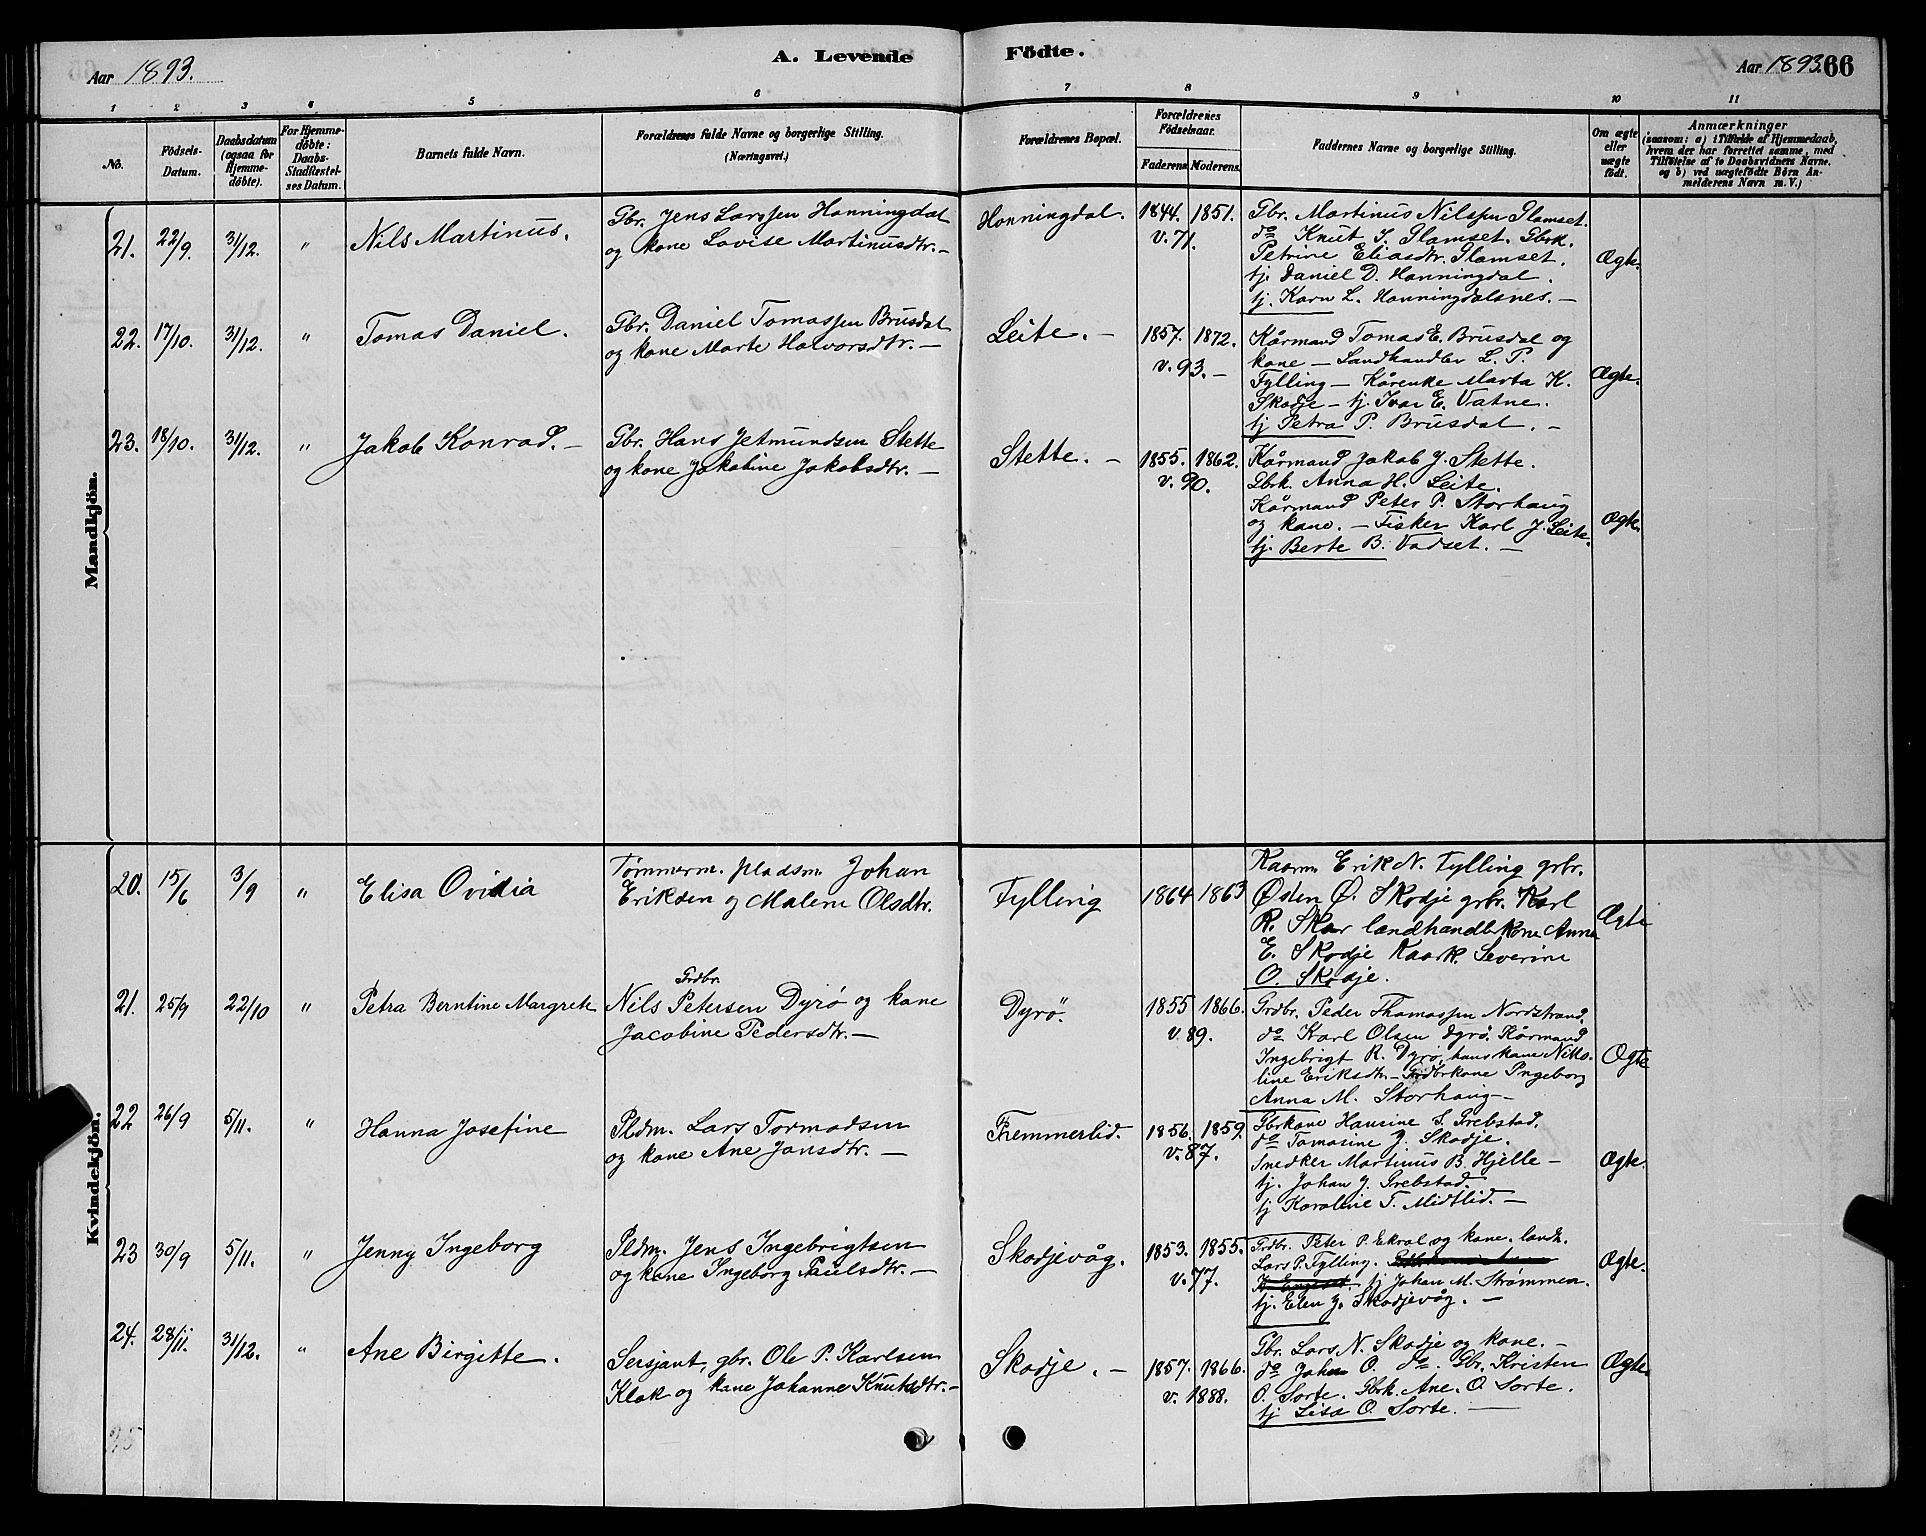 Aar 1893.
A. Levende Födte.
Aar 1893. 66
1 2 3 4 5 6 7 8 9 10 11
No.
Födsels-Datum.
Daabsdatum (ogsaa for Hjemme-döbte).
For Hjemme-döbte: Daabs-Stadfæstel-ses Datum.
Barnets fulde Navn.
Forældrenes fulde Navne og borgerlige Stilling. (Næringsvei.)
Forældrenes Bopæl.
Forældrenes Födselsaar.
Faderens Moderens.
Faddernes Navne og borgerlige Stilling.
Om ægte eller uægte födt.
Anmærkninger
(saasom: a) i Tilfælde af Hjemmedaab,
hvem der har forrettet samme, med
Tilföielse af to Daabsvidners Navne.
og b) ved uægtefödte Börn An-
melderens Navn m. V.)
Mandkjön.
21. 22/9 31/12. " Nils Martinus.
Gbr. Jens Larssen Honningdal
og kone Lovise Martinusdtr. -
Honningdal. 1844. 1851.
v. 71.
Gbr. Martinus Nilssen Glamset.
do Knut S. Glamset. Gbrk.
Petrine Eliasdtr. Glamset.
tj. Daniel D. Honningdal.
tj. Karn L. Honningdalsnes. -
Ægte.
22. 17/10. 31/12. " Tomas Daniel.
Gbr. Daniel Tomassen Brusdal
og kone Marte Halvorsdtr. -
Leite. - 1857. 1872.
v. 93. -
Kårmand Tomas E. Brusdal og
kone - Landhandler L. P.
Fylling - Kårenke Marta K.
Skodje - tj. Ivar E. Vatne.
tj Petra P. Brusdal. -
Ægte.
23. 18/10. 31/12. " Jakob Konrad. -
Gbr. Hans Jetmundsen Stette
og kone Jakobine Jakobsdtr. -
Stette. - 1855. 1862.
v. 90.
Kårmand Jakob J. Stette.
Gbrk. Anna H. Leite.
Kårmand Peter P. Storhaug
og kone. - Fisker Karl J. Leite.
tj. Berte B. Vadset. -
Ægte.
Kvindekjön.
20. 15/6 3/9 " Elisa Ovidia
Tømmerm. pladsm. Johan
Eriksen og Malene Olsdtr.
Fylling 1864 1863
Kaarm. Erik N. Fylling grbr.
Østen Ø. Skodje grbr. Karl
R. Skar landhandlerkone Anna
E. Skodje Kaark. Severine
O. Skodje.
Ægte
21. 25/9 22/10 " Petra Berntine Margrete
Grdbr.
Nils Petersen Dyrø og kone
Jacobine Pedersdtr. -
Dyrø. 1855 1866.
v. 89.
Grdbr. Peder Thomassen Nordstrand.
do Karl Olsen Dyrø. Kårmand
Ingebrigt R. Dyrø, hans kone Niko-
line Eriksdtr - Grdbrkone Ingeborg
Anna M. Storhaug -
Ægte
22 26/9 5/11. " Hanna Josefine
Pldm. Lars Tormodsen
og kone Ane Jonsdtr. -
Fremmerlid. 1856. 1859.
v. 87.
Gbrkone Hansine S. Grebstad.
do Tomasine J. Skodje.
Snedker Martinus B. Hjelle -
tj. Johan J. Grebstad.
tj Karoline T. Midtlid. -
Ægte.
23 30/9 5/11. " Jenny Ingeborg
Pldm. Jens Ingebrigtsen
og kone Ingeborg Paulsdtr. -
Skodjevåg. 1853. 1855.
v. 77.
Grdbr. Peter P. Ekrol og kone. landh.
Lars P. Fylling.
tj Johan M. Strømmen.
tj. Elen J. Skodjevåg. -
Ægte.
24. 28/11. 31/12. " Ane Birgitte.
Sersjant, gbr. Ole P. Karlsen
Klok og kone Johanne Knutsdtr. -
Skodje. - 1857. 1866.
v. 1888.
Gbr. Lars N. Skodje og kone. -
do Johan O. do. Gbr. Kristen
O. Sorte. Gbrk. Ane. O Sorte.
tj Lisa O. Sorte. -
Ægte
25